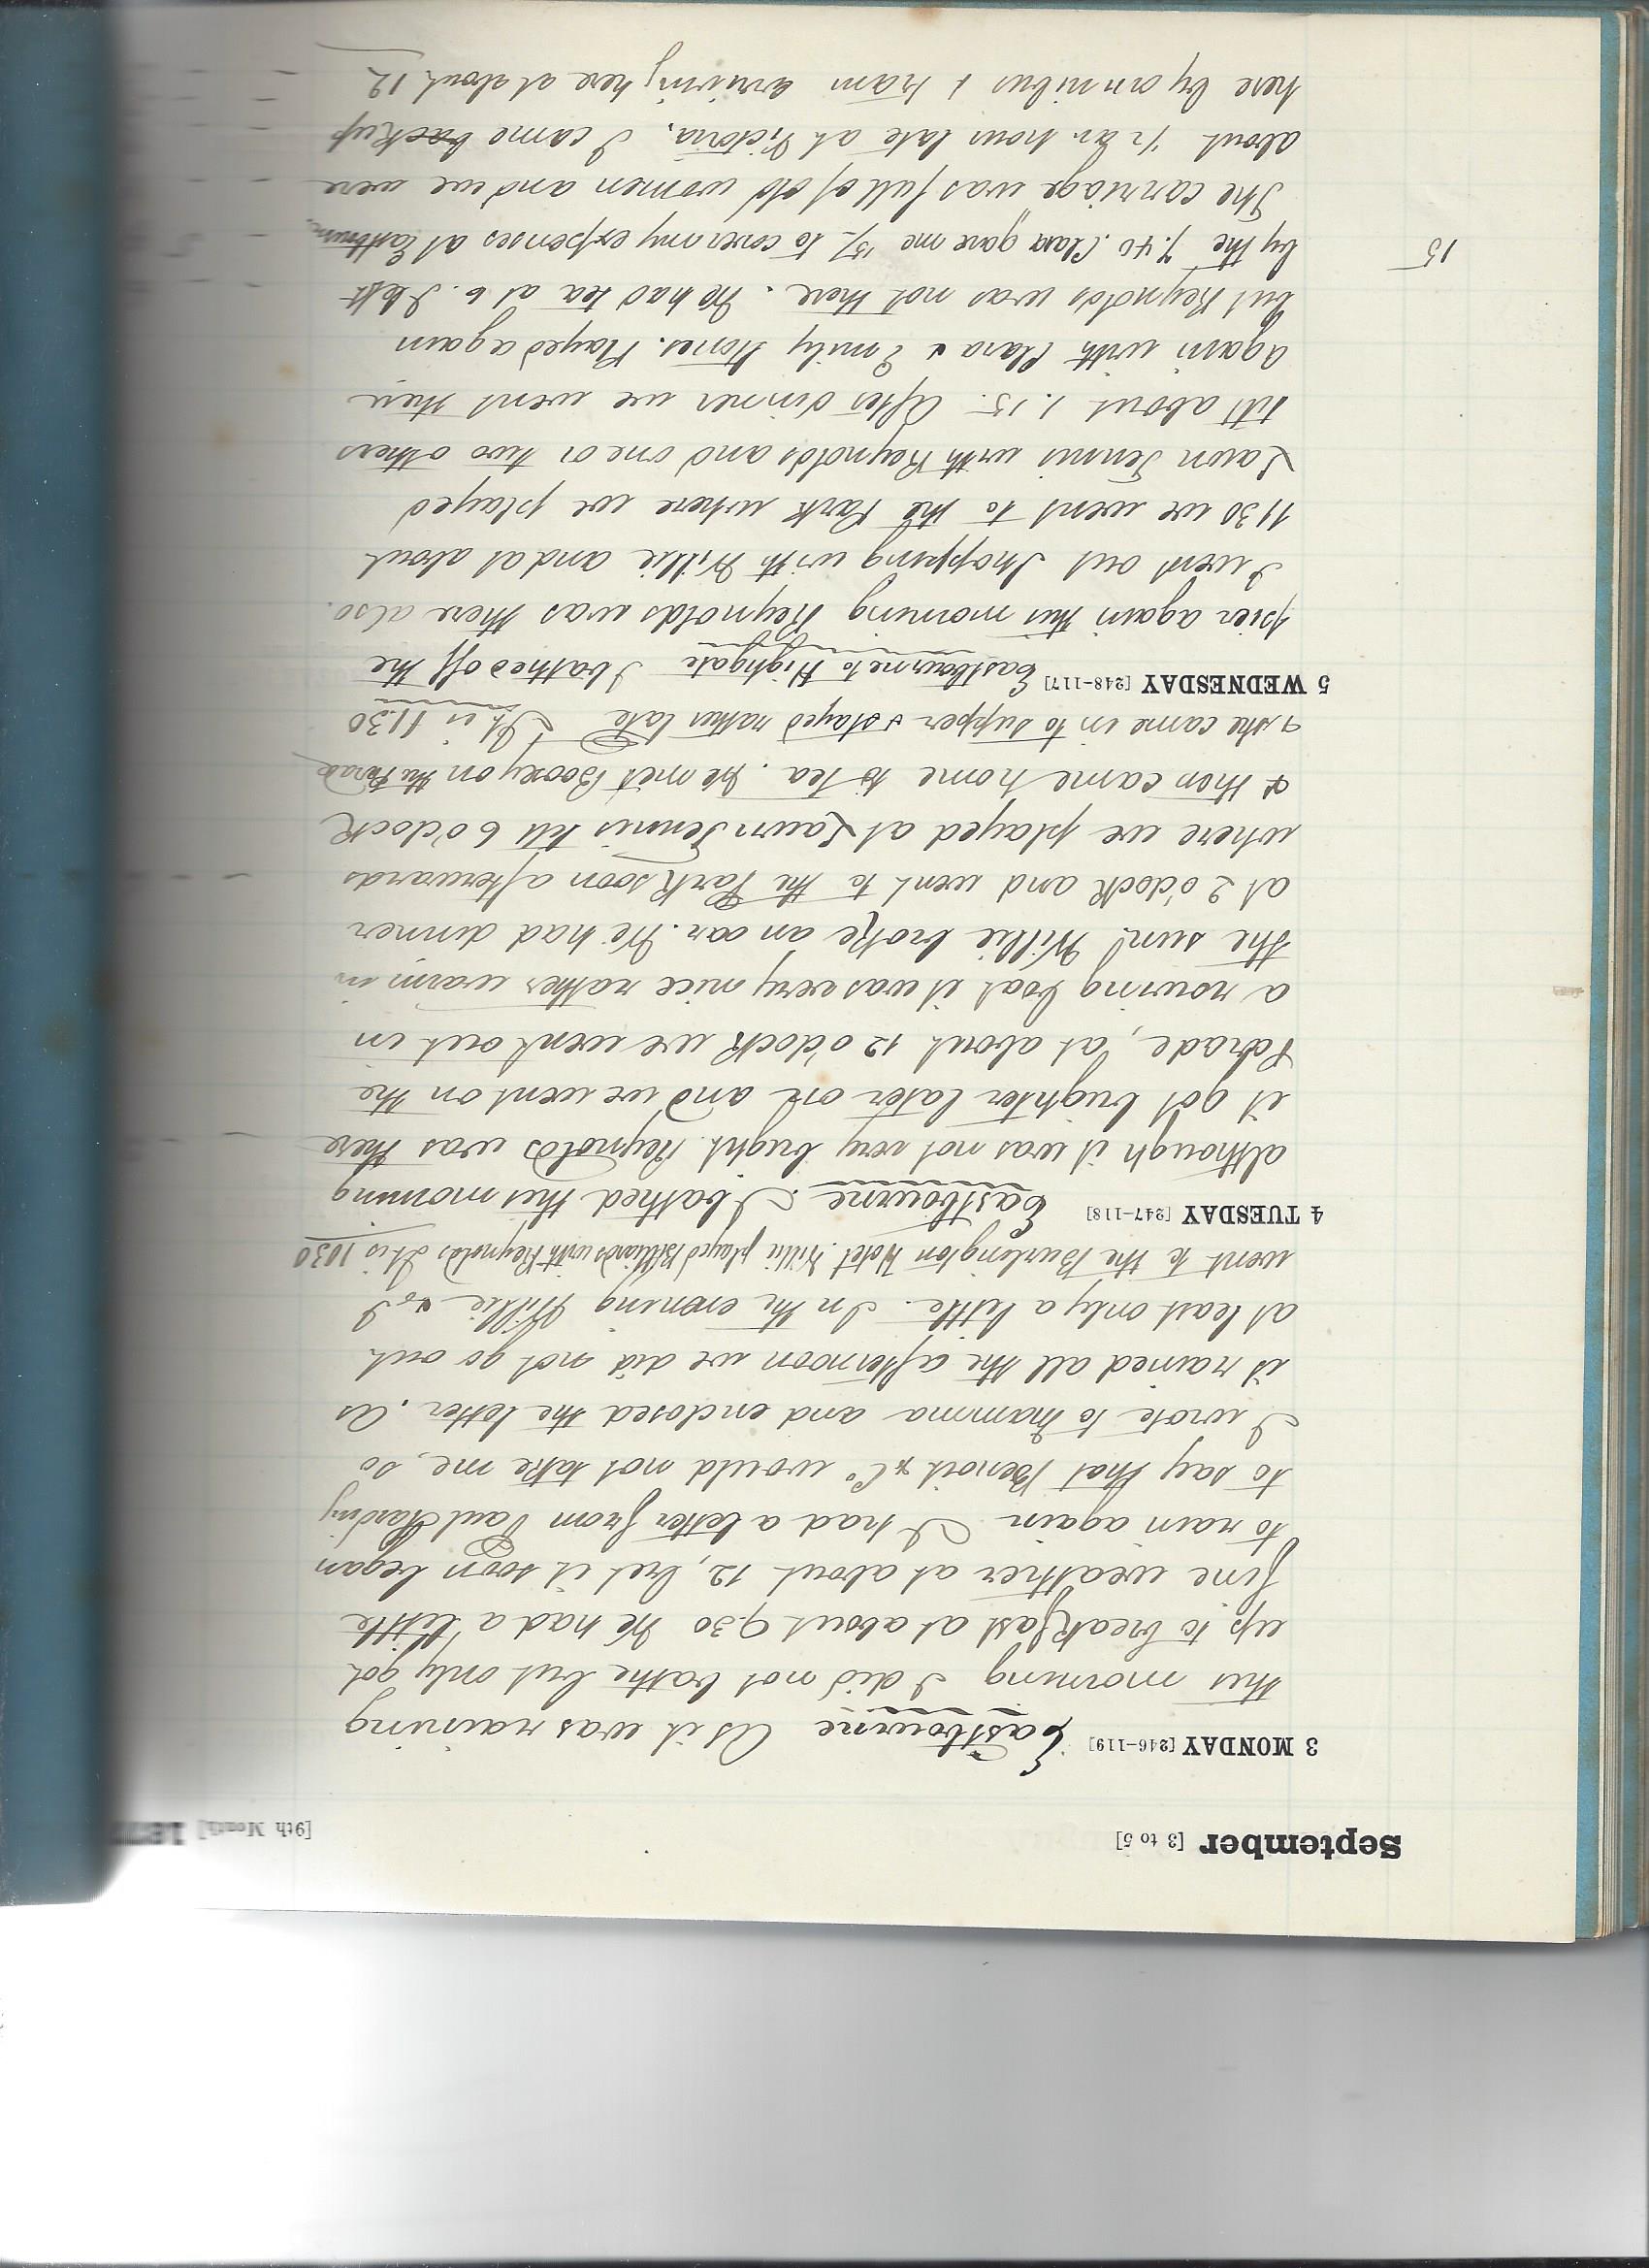 September [3 to 5] [9th Month] 187
3 MONDAY [246-119] Eastbourne As it was raining
this morning I did not bathe but only got
up to breakfast at about 9.30 We had a little
fine weather at about 12, but it soon began
to rain again I had a letter from Paul Harding
to say that Benoit & Co would not take me, so
I wrote to Mamma and enclosed the letter. As
it rained all the afternoon we did not go out
at least only a little. In the evening Willie & I
went to the Burlington Hotel. Willie played Billiards with Reynolds It is 10 30
4 TUESDAY [247-118] Eastbourne. I bathed this morning
although it was not very bright. Reynolds was there
it got brighter later on and we went on the
Parade, at about 12 o'clock we went out in
a rowing boat it was very nice rather warm in
the sun! Willie broke an oar. We had dinner
at 2 o'clock and went to the Park soon afterwards
where we played at Lawn Tennis till 6 o'clock
& then came home to tea. We met Boosey on the Parade
& he came in to supper & stayed rather late It is 11.30
5 WEDNESDAY [248-117] Eastbourne to Highgate I bathed off the
pier again this morning Reynolds was there also.
I went out shopping with Willie and at about
11 30 we went to the Park where we played
Lawn Tennis with Reynolds and one or two others
till about 1.15. After dinner we went there
again with Clara & Emily Stones. Played again
but Reynolds was not there. We had tea at 6. I left
by the 7.40. Clara gave me 15/- to cover my expenses at Eastbourne. 15
The carriage was full of old women and we were
about 1/2 an hour late at Victoria. I came back up
here by omnibus & tram arriving here at about 12